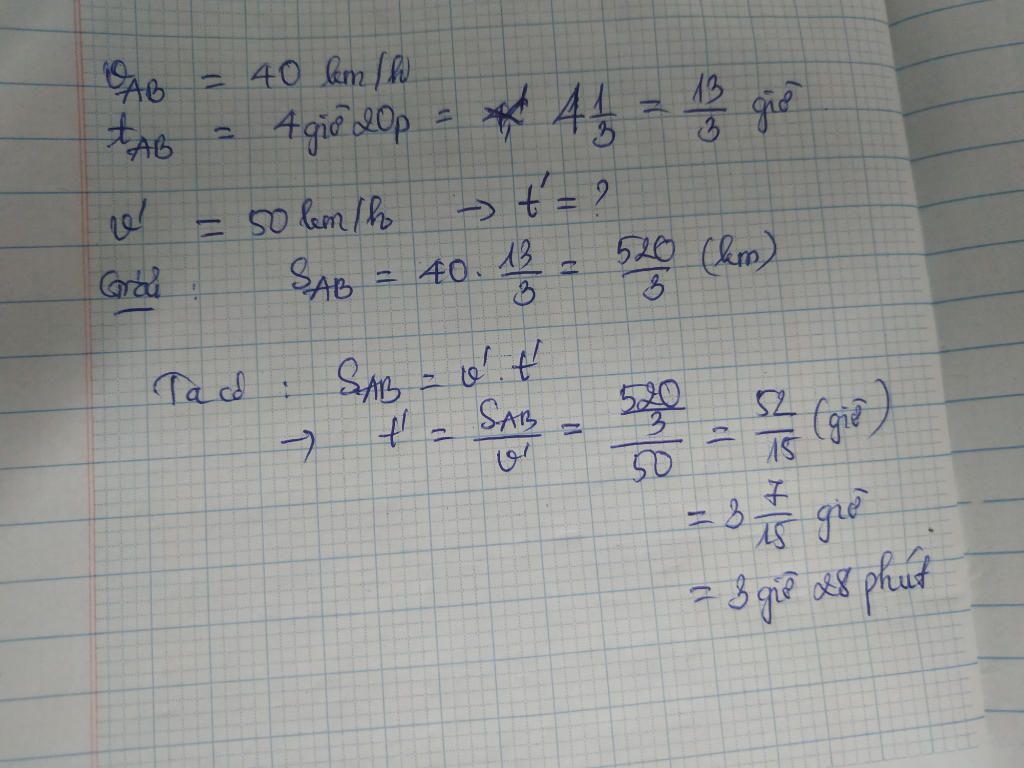 v_AB = 40 km/h
t_AB = 4 giờ 20p = 4 1/3 = 13/3 giờ
v' = 50 km/h → t' = ?
Giải : S_AB = 40 . 13/3 = 520/3 (km)
Ta có : S_AB = v' . t'
→ t' = S_AB/v' = (520/3)/50 = 52/15 (giờ)
= 3 7/15 giờ
= 3 giờ 28 phút